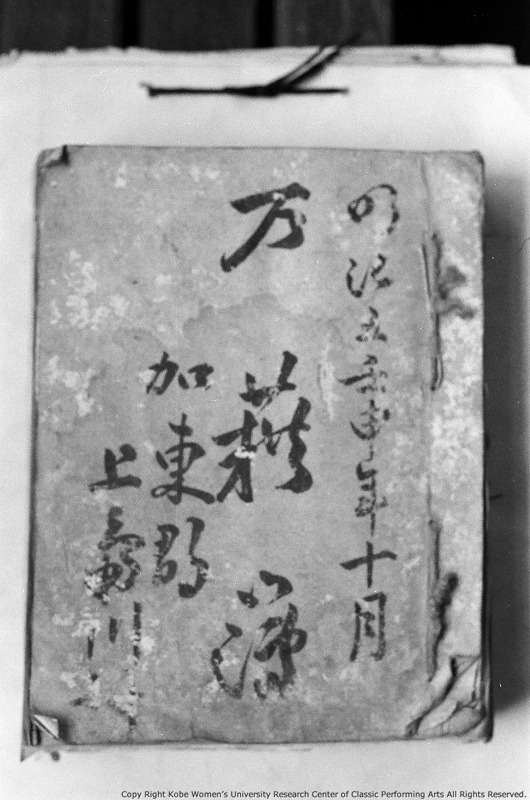 明治五壬申年十月
万藉簿
加東郡
上鴨川
Copy Right Kobe Women's University Research Center of Classic Performing Arts All Rights Reserved.